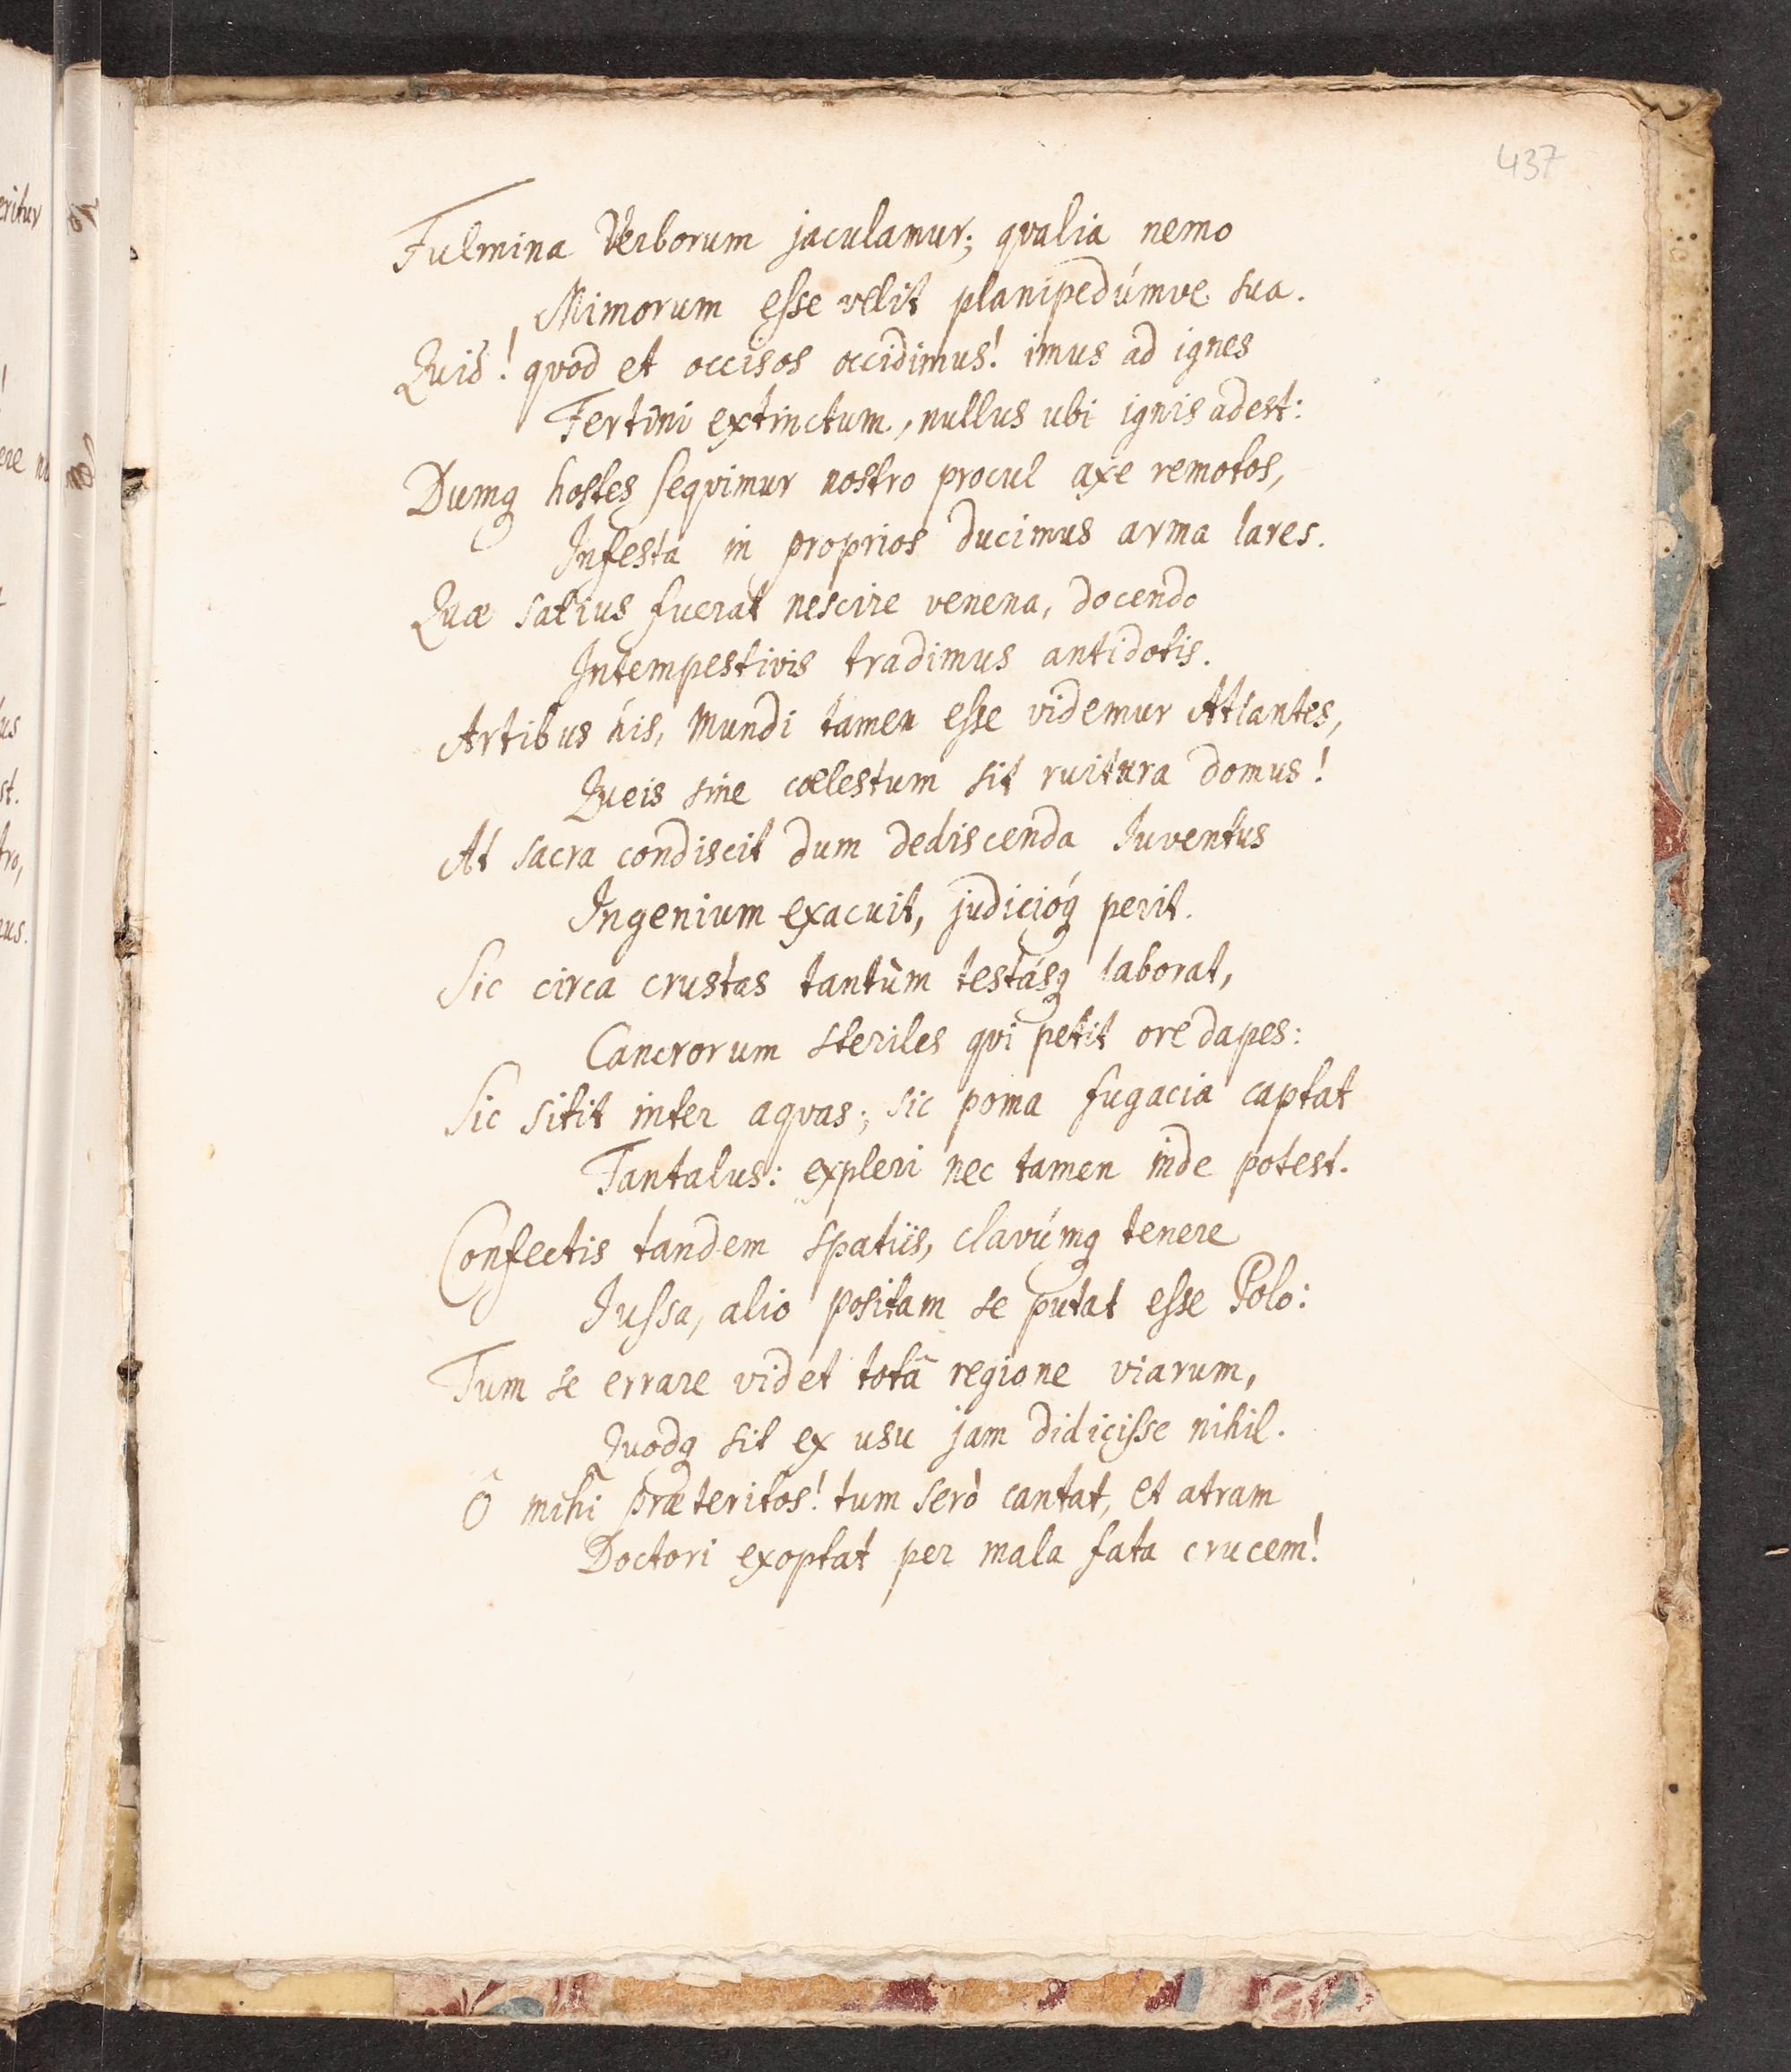 437
Fulmina Verborum jaculamur; qvalia nemo
Mimorum esse velit planipedúmve sua.
Quid! qvod et occisos occidimus! imus ad ignes
Fertini extinctum, nullus ubi ignis adest:
Dumq hostes seqvimur nostro procul axe remotos,
Infesta in proprios ducimus arma lares.
Quæ satius fuerat nescire venena, docendo
Intempestivis tradimus antidotis.
Artibus his, Mundi tamen esse videmur Atlantes,
Queis sine cœlestum sit ruitura domus!
At sacra condiscit dum dediscenda Iuventus
Ingenium exacuit, judicióq perit.
Sic circa crustas tantùm testásq laborat,
Cancrorum steriles qvi petit ore dapes:
Sic sitit inter aqvas; sic poma fugacia captat
Tantalus: expleri nec tamen inde potest.
Confectis tandem spatiis, clavúmq tenere
Jussa, alio positam se putat esse Polo:
Tum se errare videt totâ regione viarum,
Quodq sit ex usu jam didicisse nihil.
Ô mihi præteritos! tum serò cantat, et atram
Doctori exoptat per mala fata crucem!